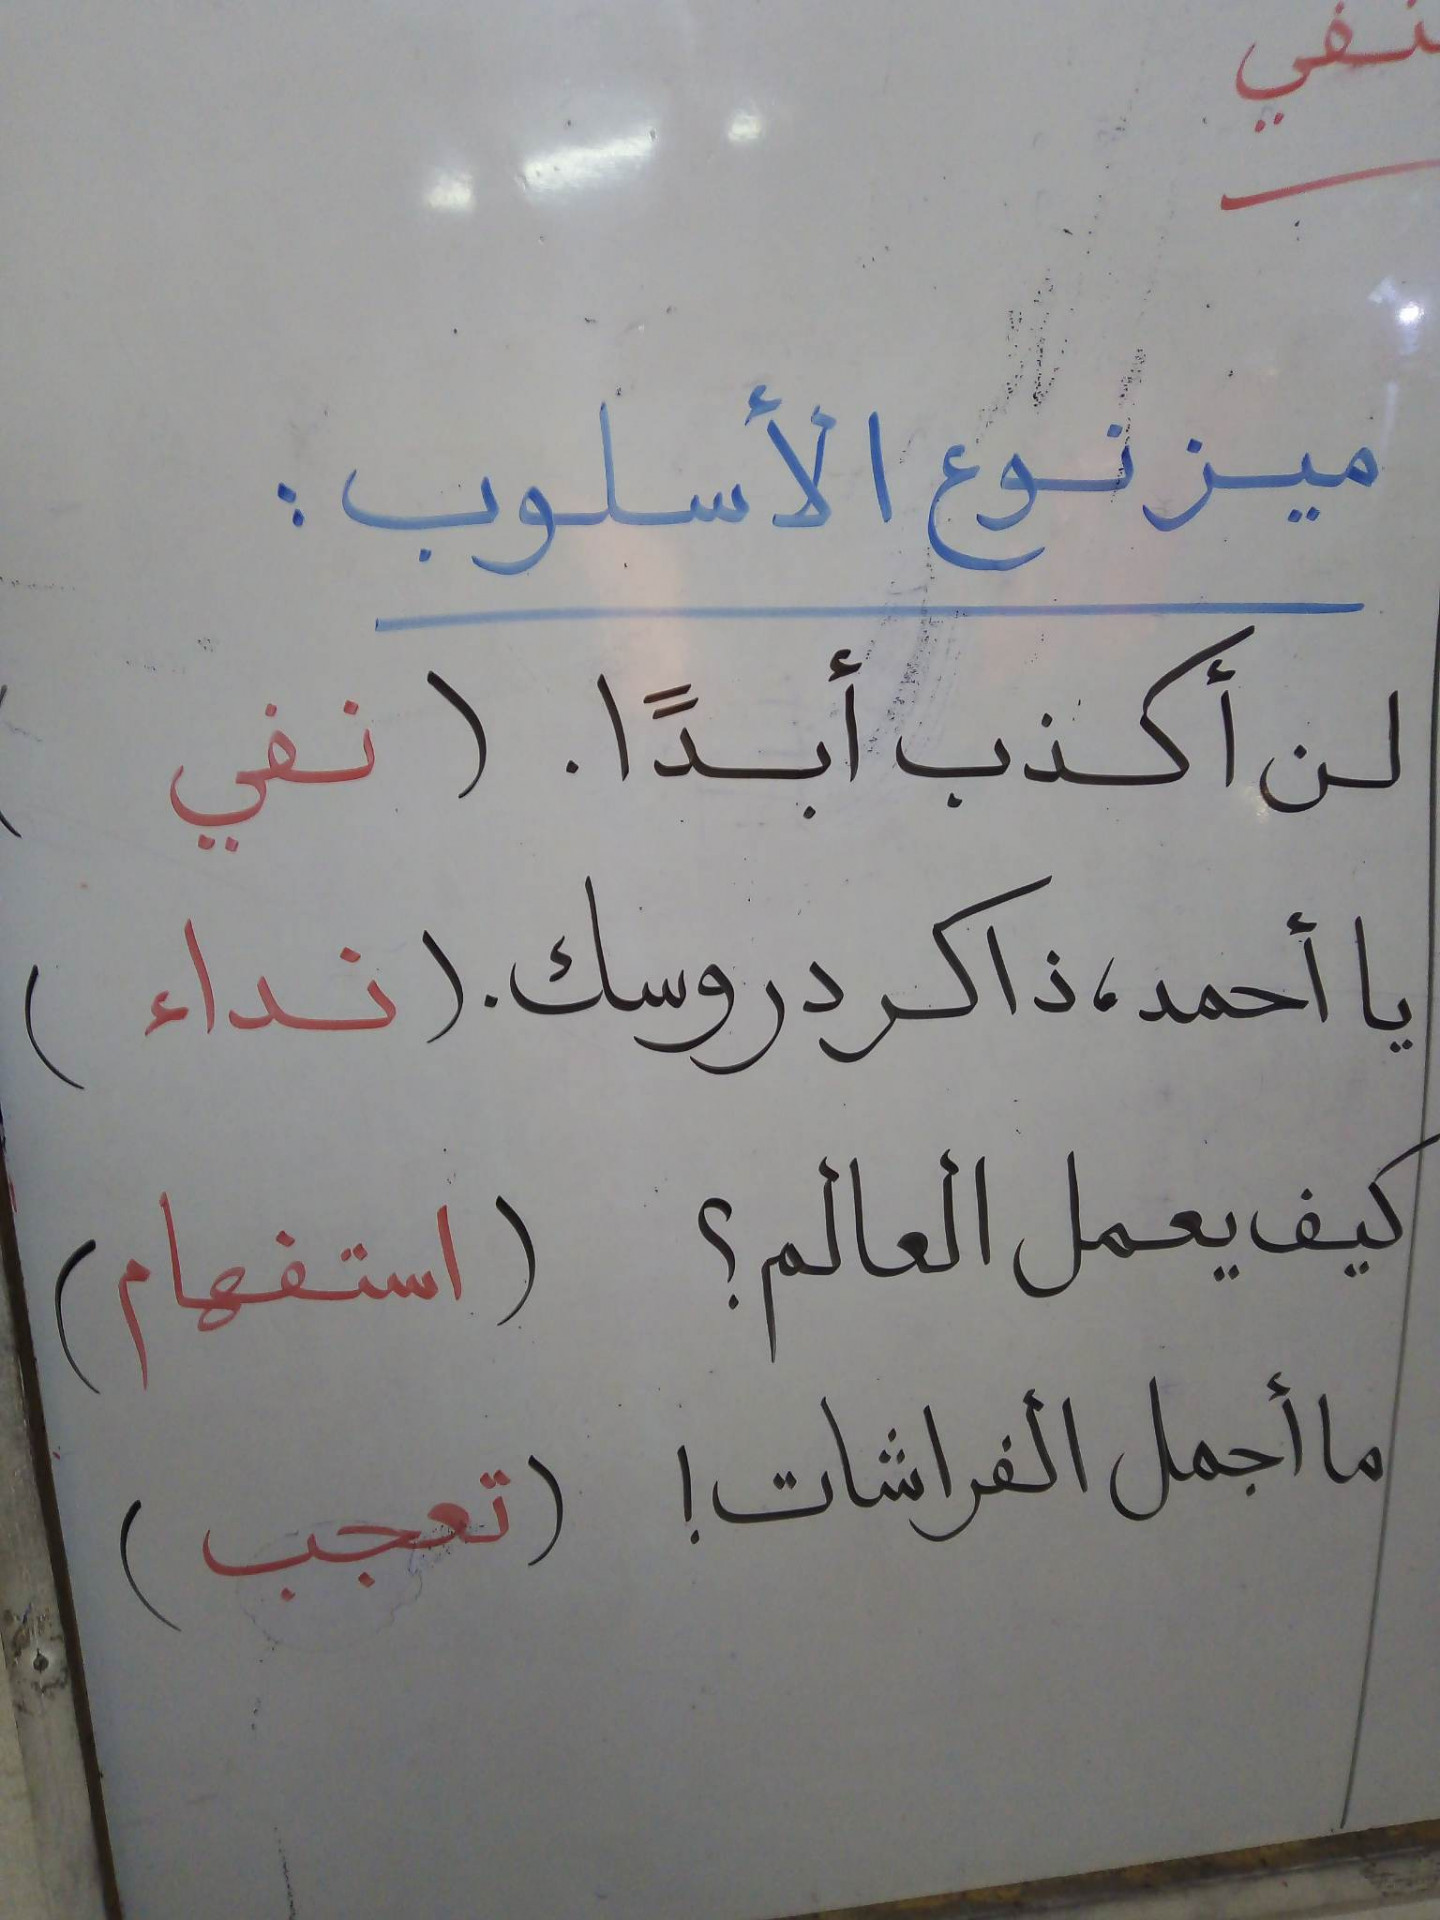 ميز نوع الأسلوب :
لن أكذب أبدًا . ( نفي )
يا أحمد، ذاكر دروسك . ( نداء )
كيف يعمل العالم ؟ ( استفهام )
ما أجمل الفراشات ! ( تعجب )